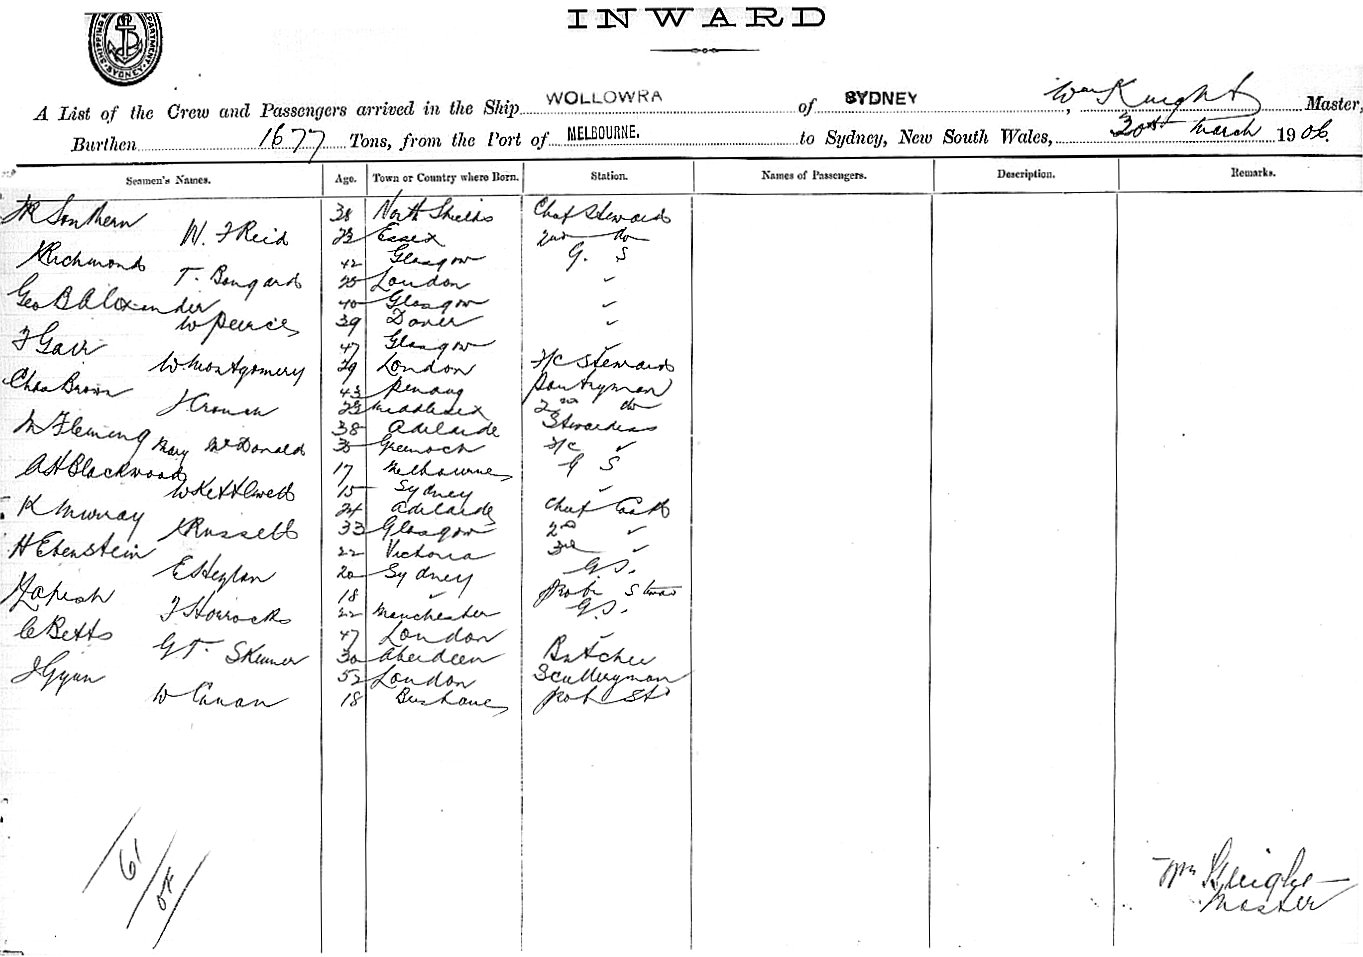 INWARD
A List of the Crew and Passengers arrived in the Ship WOLLOWRA of SYDNEY, Wm Knight Master,
Burthen 1677 Tons, from the Port of MELBOURNE. to Sydney, New South Wales, 30th March 1906.
Seamen's Names. Age. Town or Country where Born. Station. Names of Passengers. Description. Remarks.
Southern 38 North Shields Chef Steward
W. F Reid Essex 2nd do
Richmond 42 Glasgow G. S
T. Bongard 25 London ✓
Geo B Alexander 40 Glasgow ✓
W Peirce 39 Dover ✓
F Gair 47 Glasgow ✓
W Montgomery 29 London F/C Steward
Chas Brown 43 Penang Pantryman
J Cronan Middlesex 2nd do
M Fleming 38 Adelaide Stewardess
Mary McDonald Greenock F/C ✓
A H Blackwood 17 Melbourne G S
W Kettlewell 15 Sydney ✓
K Murray 24 Adelaide Chief Cook
Russell 33 Glasgow 2nd ✓
H Ebenstein 22 Victoria 3rd ✓
E Heylan 20 Sydney G.S.
18 ✓ Prob Stwd
J Horrocks 22 Manchester G.S.
C Betts 47 London ✓
G T. Skinner 30 Aberdeen Butcher
J Gynn 52 London Sculleryman
W Curran 18 Brisbane Prob St
61
Wm Knight
Master